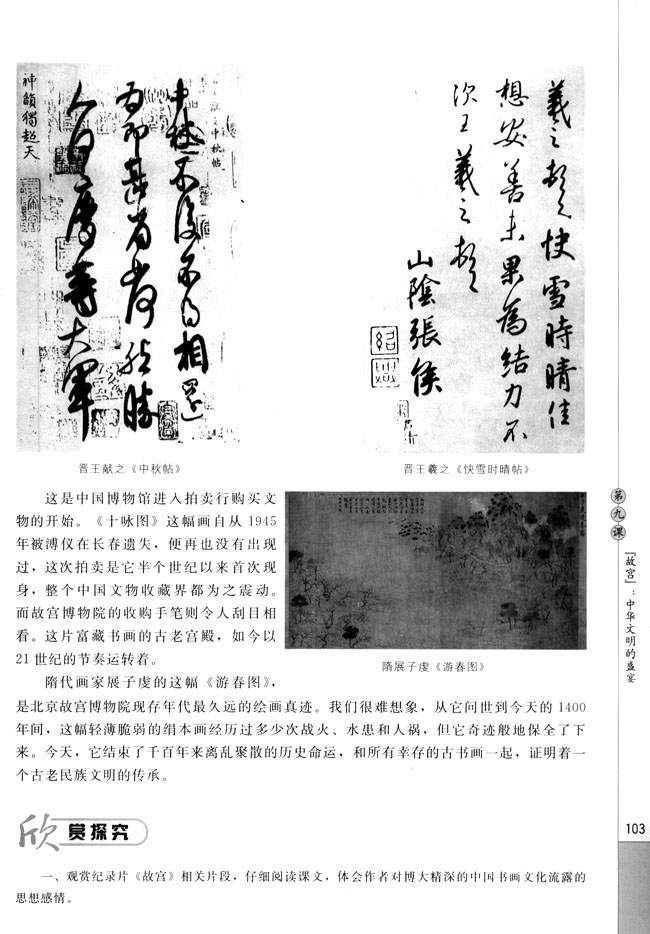 中秋不復不得相還
為即甚省如何然勝
人何慶等大軍
神韻獨超天
羲之頓首快雪時晴佳
想安善未果為結力不
次王羲之頓首
山陰張侯
晋王献之《中秋帖》
晋王羲之《快雪时晴帖》
这是中国博物馆进入拍卖行购买文
物的开始。《十咏图》这幅画自从 1945
年被溥仪在长春遗失，便再也没有出现
过，这次拍卖是它半个世纪以来首次现
身，整个中国文物收藏界都为之震动。
而故宫博物院的收购手笔则令人刮目相
看。这片富藏书画的古老宫殿，如今以
21 世纪的节奏运转着。
隋展子虔《游春图》
隋代画家展子虔的这幅《游春图》，
是北京故宫博物院现存年代最久远的绘画真迹。我们很难想象，从它问世到今天的 1400
年间，这幅轻薄脆弱的绢本画经历过多少次战火、水患和人祸，但它奇迹般地保全了下
来。今天，它结束了千百年来离乱聚散的历史命运，和所有幸存的古书画一起，证明着一
个古老民族文明的传承。
欣赏探究
一、观赏纪录片《故宫》相关片段，仔细阅读课文，体会作者对博大精深的中国书画文化流露的
思想感情。
第九课
『故宫』：中华文明的盛宴
103